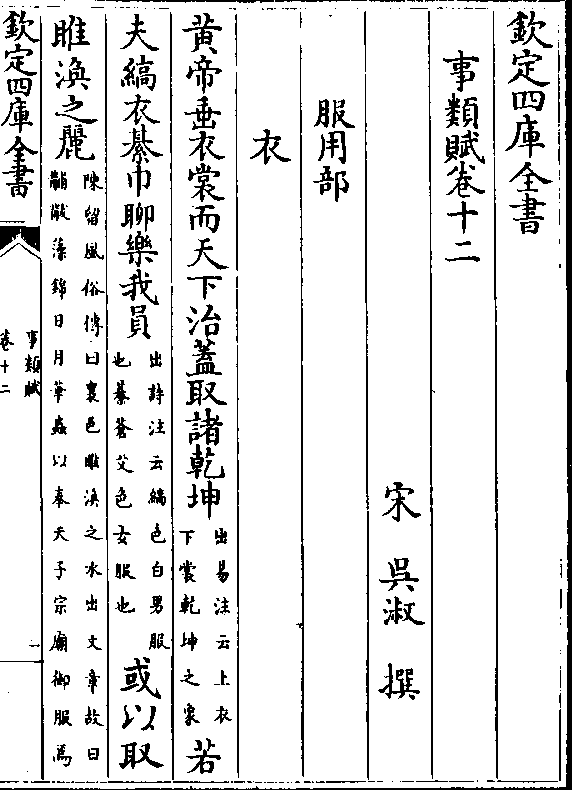 欽定四庫全書
事類賦卷十二
宋 吳淑 撰
服用部
衣
黄帝垂衣裳而天下治蓋取諸乾坤出易注云上衣下裳乾坤之象若
夫縞衣綦巾聊樂我員出詩注云縞色白男服也綦蒼艾色女服也或以取
睢渙之麗陳留風俗傳曰襄邑睢渙之水出文章故曰黼黻藻錦日月華蟲以奉天子宗廟御服焉
欽定四庫全書
事類賦
卷十二
一